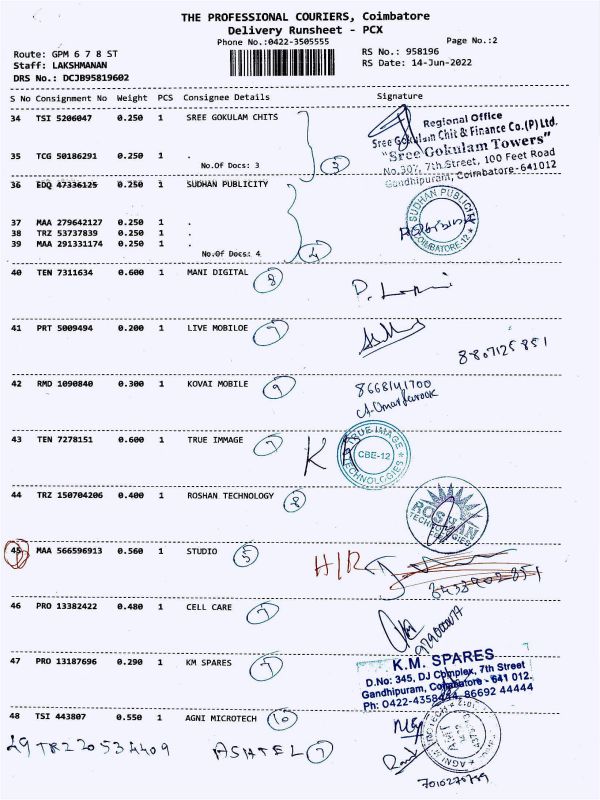 THE PROFESSIONAL COURIERS, Coimbatore
Delivery Runsheet - PCX
Phone No.:0422-3505555
Page No.:2
Route: GPM 6 7 8 ST
RS No.: 958196
Staff: LAKSHMANAN
RS Date: 14-Jun-2022
DRS No.: DCJB95819602
S No Consignment No Weight PCS Consignee Details Signature
34 TSI 5206047 0.250 1 SREE GOKULAM CHITS
Regional Office
Sree Gokulam Chit & Finance Co.(P) Ltd.
"Sree Gokulam Towers"
No.307, 7th Street, 100 Feet Road
Gandhipuram, Coimbatore-641012
35 TCG 50186291 0.250 1 .
No.Of Docs: 3
3
36 EDQ 47336125 0.250 1 SUDHAN PUBLICITY
SUDHAN PUBLICITY
COIMBATORE-12
37 MAA 279642127 0.250 1 .
38 TRZ 53737839 0.250 1 .
39 MAA 291331174 0.250 1 .
No.Of Docs: 4
4
40 TEN 7311634 0.600 1 MANI DIGITAL 8
41 PRT 5009494 0.200 1 LIVE MOBILOE 7
8807125851
42 RMD 1090840 0.300 1 KOVAI MOBILE 9
8668141700
A. Omar farook
43 TEN 7278151 0.600 1 TRUE IMMAGE 7
K
TRUE IMAGE
CBE-12
TECHNOLOGIES
44 TRZ 150704206 0.400 1 ROSHAN TECHNOLOGY 8
ROSHAN
TECHNOLOGIES
45 MAA 566596913 0.560 1 STUDIO 5
H/R
46 PRO 13382422 0.480 1 CELL CARE 7
47 PRO 13187696 0.290 1 KM SPARES 7
K.M. SPARES
D.No: 345, DJ Complex, 7th Street
Gandhipuram, Coimbatore - 641 012.
Ph: 0422-4358444, 86692 44444
48 TSI 443807 0.550 1 AGNI MICROTECH 10
49 TRZ 20534409 ASHTEL 7